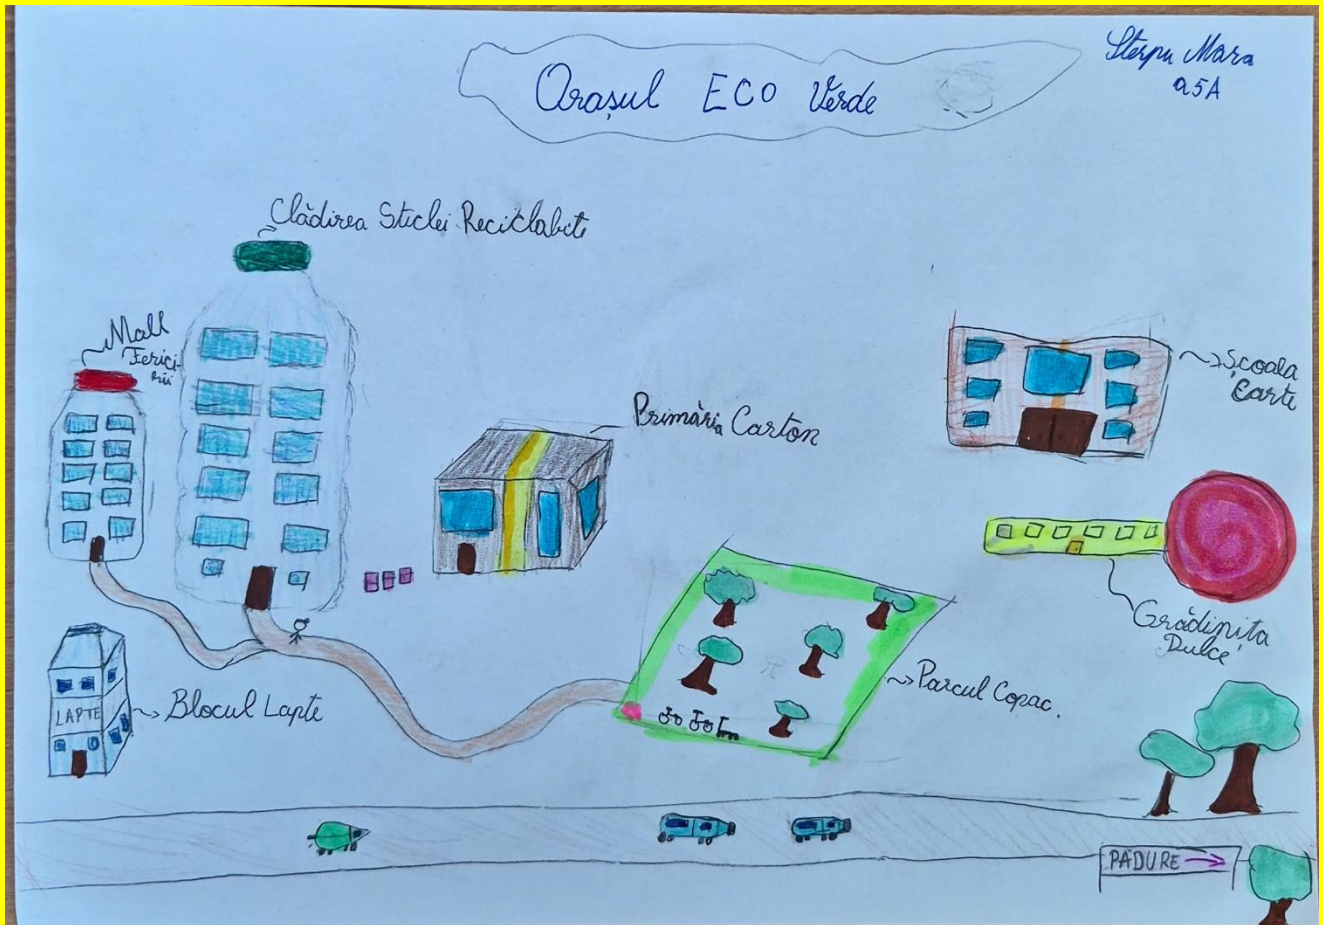 Orașul ECO Verde
Sterpu Mara
a 5A
Clădirea Sticlei Reciclabile
Mall
Ferici-
rii
Primăria Carton
Școala
Carte
Grădinița
Dulce
Parcul Copac.
Blocul Lapte
LAPTE
PĂDURE